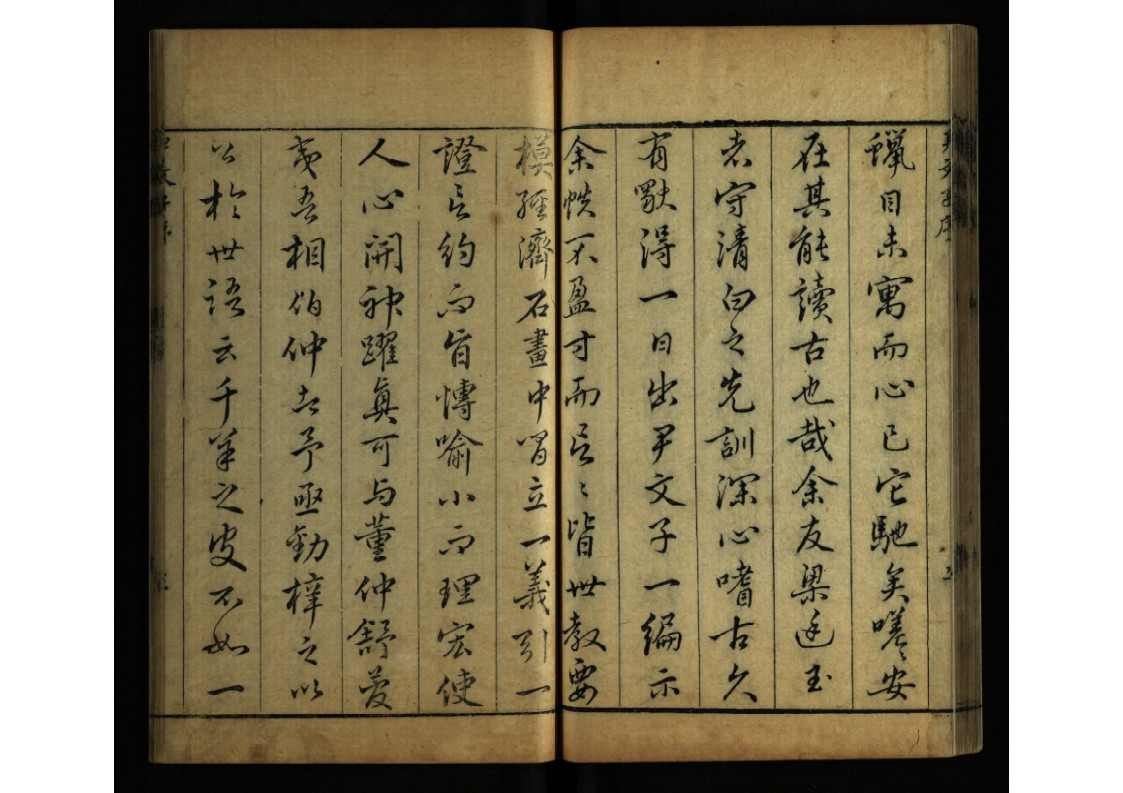 尹文子序
蠟目未寓而心已它馳矣嗟安
在其能讀古也哉余友梁廷玉
者守清白之先訓深心嗜古久
有獸得一日出尹文子一編示
余帙不盈寸而言〻皆世教要
模經濟石畫中間立一義引一
證言約而旨博喻小而理宏使
人心開神躍真可与董仲舒
吾相伯仲者予亟勸梓之以
公於世語云千羊之皮不如一